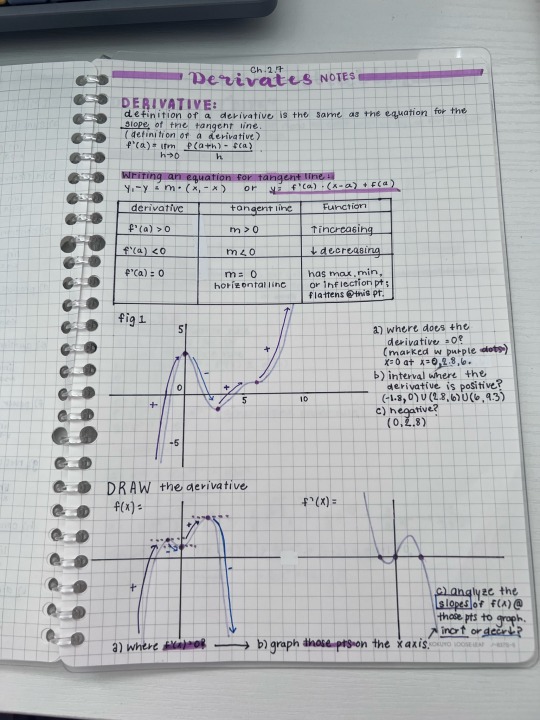 Ch. 2.7
Derivates NOTES
DERIVATIVE:
definition of a derivative is the same as the equation for the
slope of the tangent line.
(definition of a derivative)
f'(a) = lim f(a+h) - f(a)
h→0 h
Writing an equation for tangent line:
y₁-y = m·(x₁-x) or y = f'(a)·(x-a) + f(a)
derivative tangent line Function
f'(a) > 0 m > 0 ↑increasing
f'(a) < 0 m < 0 ↓ decreasing
f'(a) = 0 m = 0 has max, min,
horizontal line or inflection pt;
flattens @ this pt.
fig 1
5
0
5
10
-5
+
-
+
+
a) where does the
derivative = 0?
(marked w purple dots)
x=0 at x=0,2.8,6.
b) interval where the
derivative is positive?
(-1.8,0)U(2.8,6)U(6,9.3)
c) negative?
(0,2.8)
DRAW the derivative
f(x)= f'(x)=
+
-
+
-
c) analyze the
slopes of f(x) @
those pts to graph.
↗ incr↑ or decr↓?
a) where f'(x)=0? → b) graph those pts on the x axis.